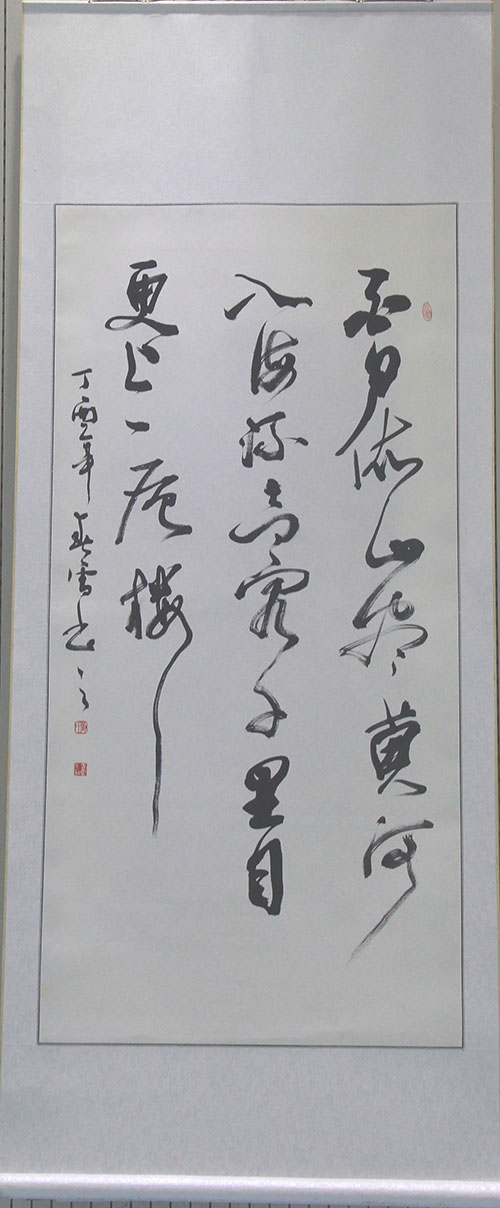 白日依山尽黄河
入海流欲穷千里目
更上一层楼
丁酉年春雪书